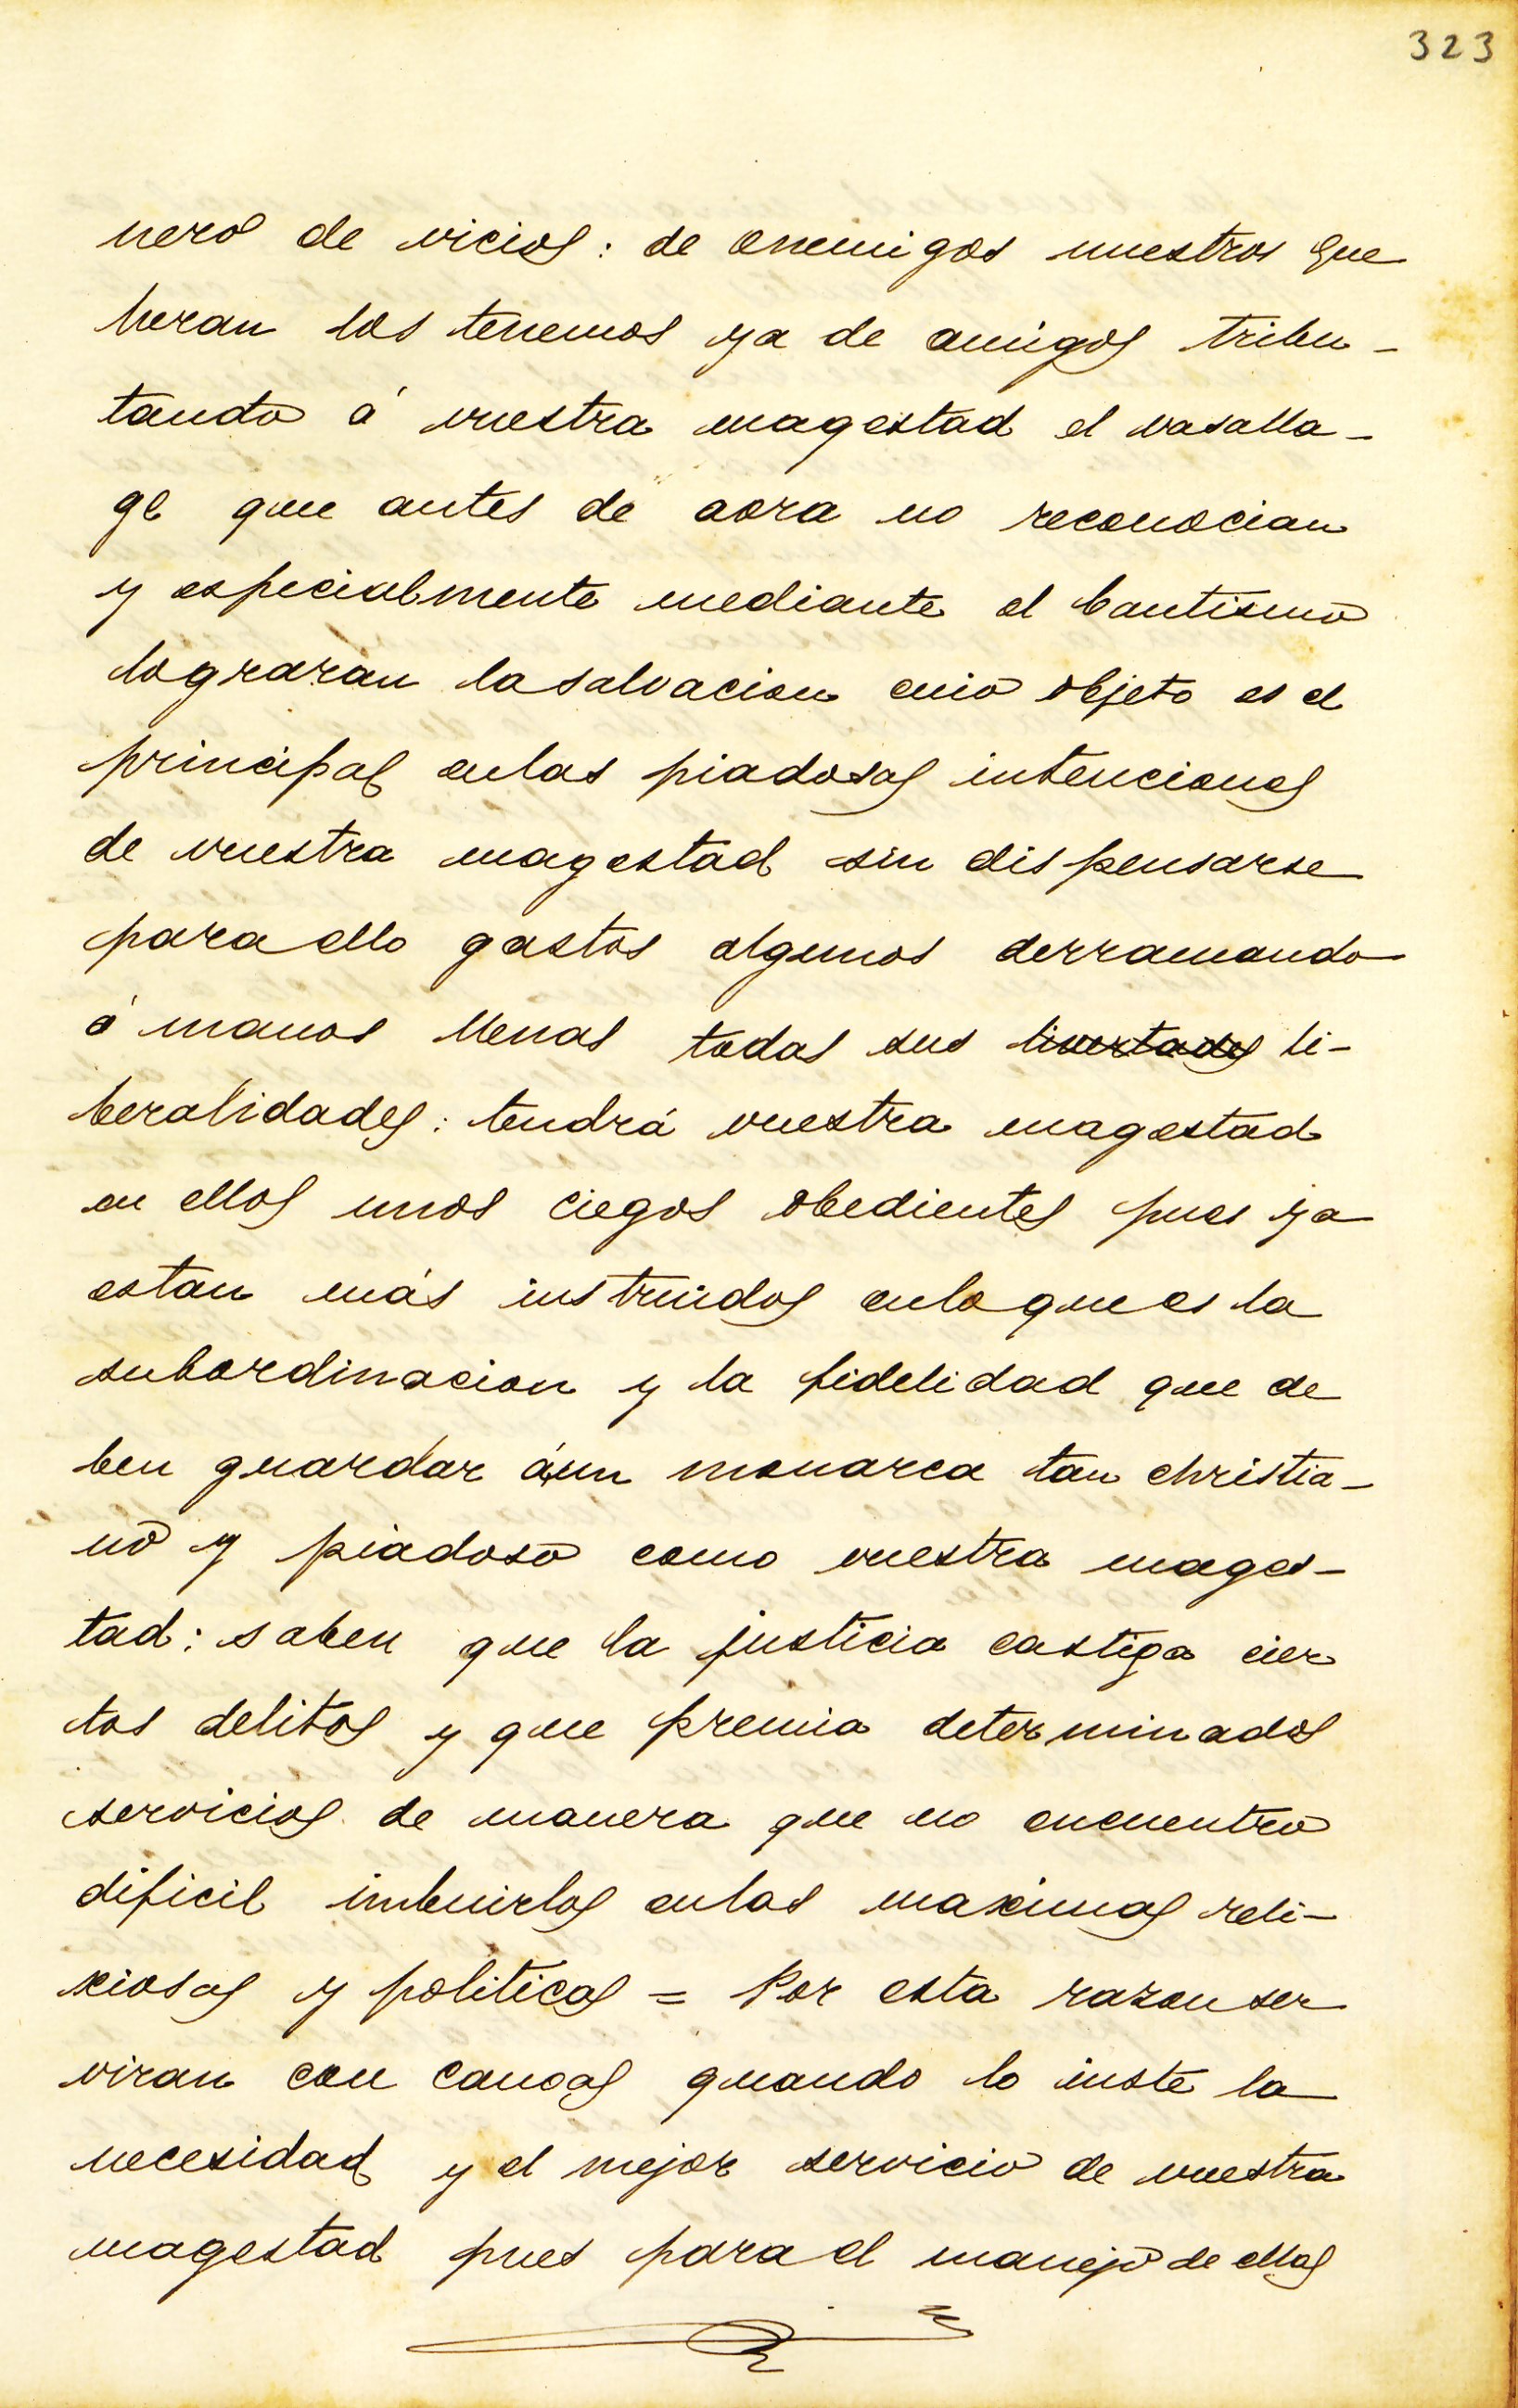 323
nero de vicios: de enemigos nuestros que
heran los tenemos ya de amigos tribu-
tando á vuestra magestad el vasalla-
ge que antes de aora no reconocian
y especialmente mediante el bautismo
lograran la salvacion cuio objeto es el
principal enlas piadosas intenciones
de vuestra magestad sin dispensarse
para ello gastos algunos derramando
á manos llenas todas sus livertades li-
beralidades: tendrá vuestra magestad
en ellos unos ciegos obedientes pues ya
estan más instruidos enloque es la
subordinacion y la fidelidad que de
ben guardar áun monarca tan christia-
no y piadoso como vuestra mages-
tad: saben que la justicia castiga cier
tos delitos y que premia determinados
servicios de manera que no encuentro
dificil imbuirlos enlas maximas reli-
xiosas y politicas = Por esta razon ser
viran con canoas quando lo inste la
necesidad y el mejor servicio de vuestra
magestad pues para el manejo de ellas